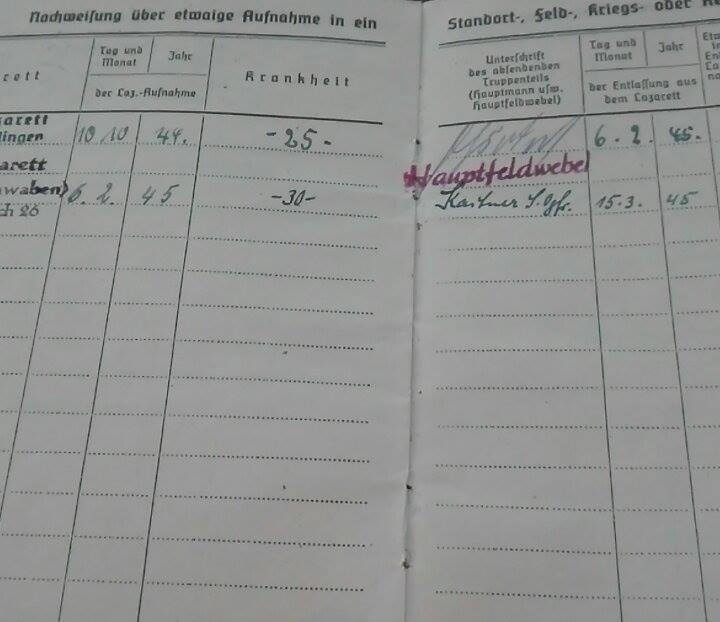 Nachweisung über etwaige Aufnahme in ein
rett
Tag und
Monat
Jahr
der Laz.-Aufnahme
Krankheit
arett
lingen
10 10 44. -25-
arett
waben) 6. 2. 45 -30-
ch 26
Standort-, Feld-, Kriegs- oder
Unterschrift
des absendenden
Truppenteils
(Hauptmann usw.
Hauptfeldwebel)
Tag und
Monat
Jahr
der Entlassung aus
dem Lazarett
6. 2. 45.
Hauptfeldwebel
15.3. 45